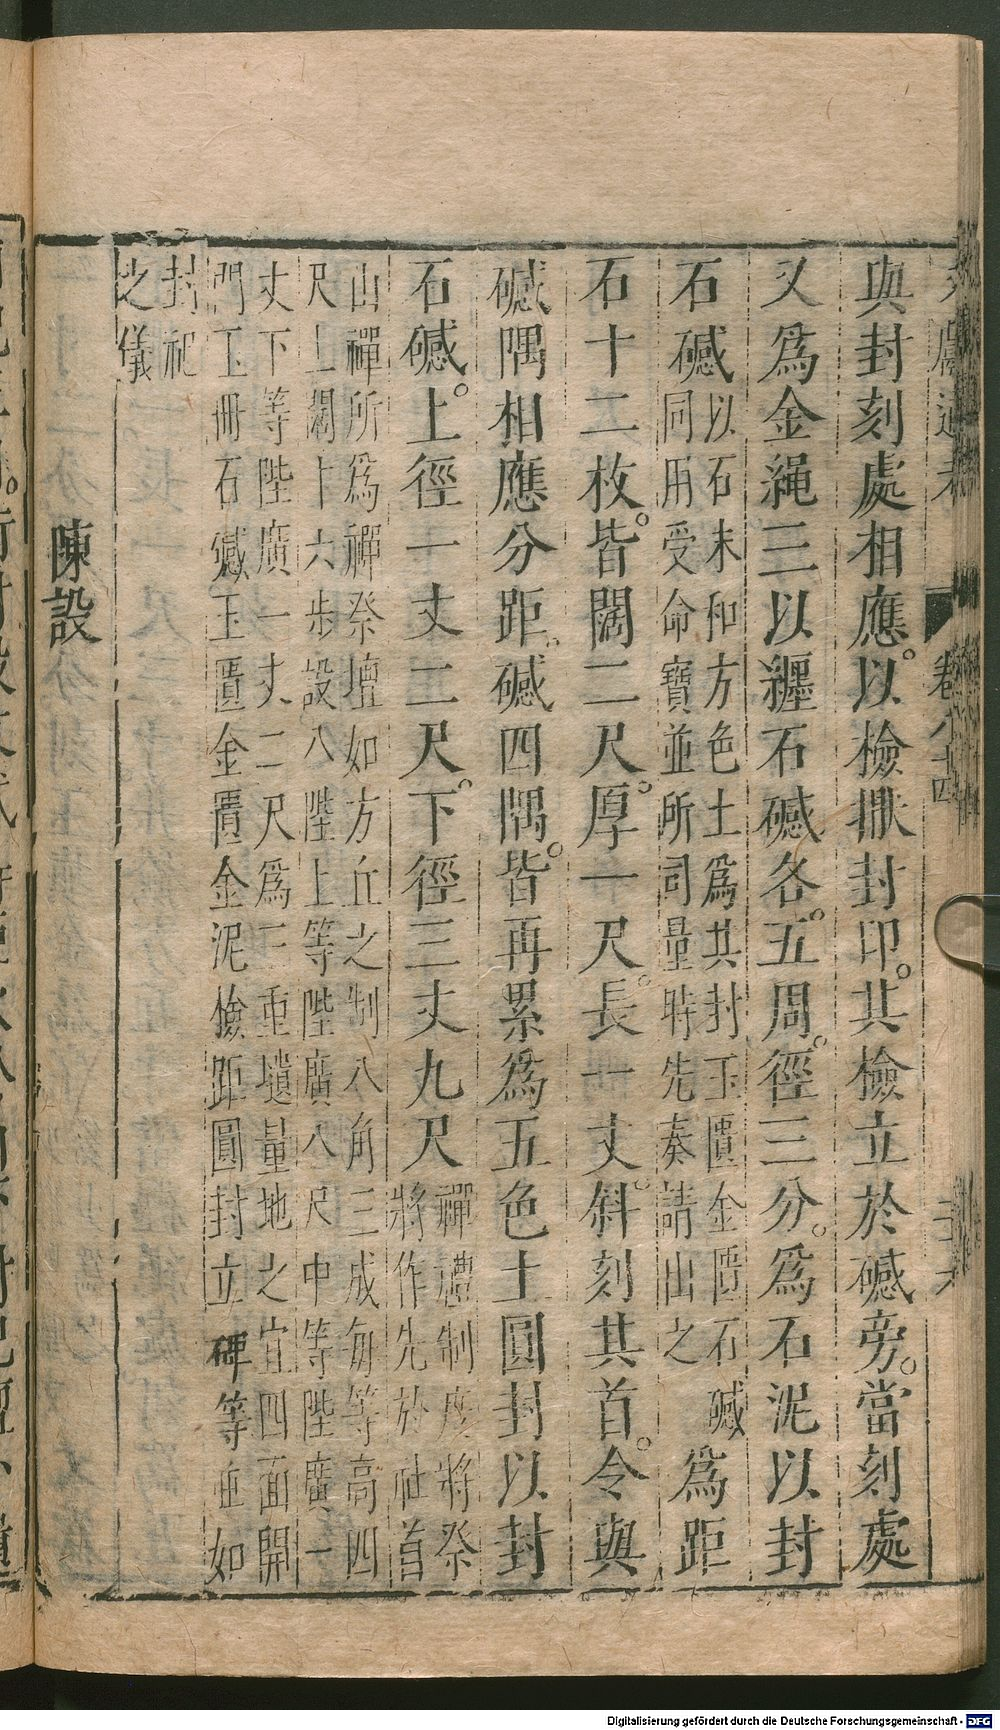 與封刻處相應。以檢擫封印。其檢立於䃭旁。當刻處
又為金繩三以纏石䃭各。五周。徑三分。為石泥以封
石䃭
以石末和方色土爲其封玉匱金匱石䃭
同用受命寶並所司量時先奏請出之
爲距
石十二枚。皆闊二尺。厚一尺。長一丈。斜刻其首。令與
䃭隅相應分距。䃭四隅。皆再累爲五色土圓封以封
石䃭。上徑一丈二尺。下徑三丈九尺
禪禮制度將祭
將作先於社首
山禪所爲禪祭壇如方丘之制八角三成每等高四
尺上闊十六步設八陛上等陛廣八尺中等陛廣一
丈下等陛廣一丈二尺爲三重壝量地之宜四面開
門玉冊石䃭玉匱金匱金泥檢距圓封立碑等並如
封祀
之儀
陳設
卷八十四
Digitalisierung gefördert durch die Deutsche Forschungsgemeinschaft - DFG